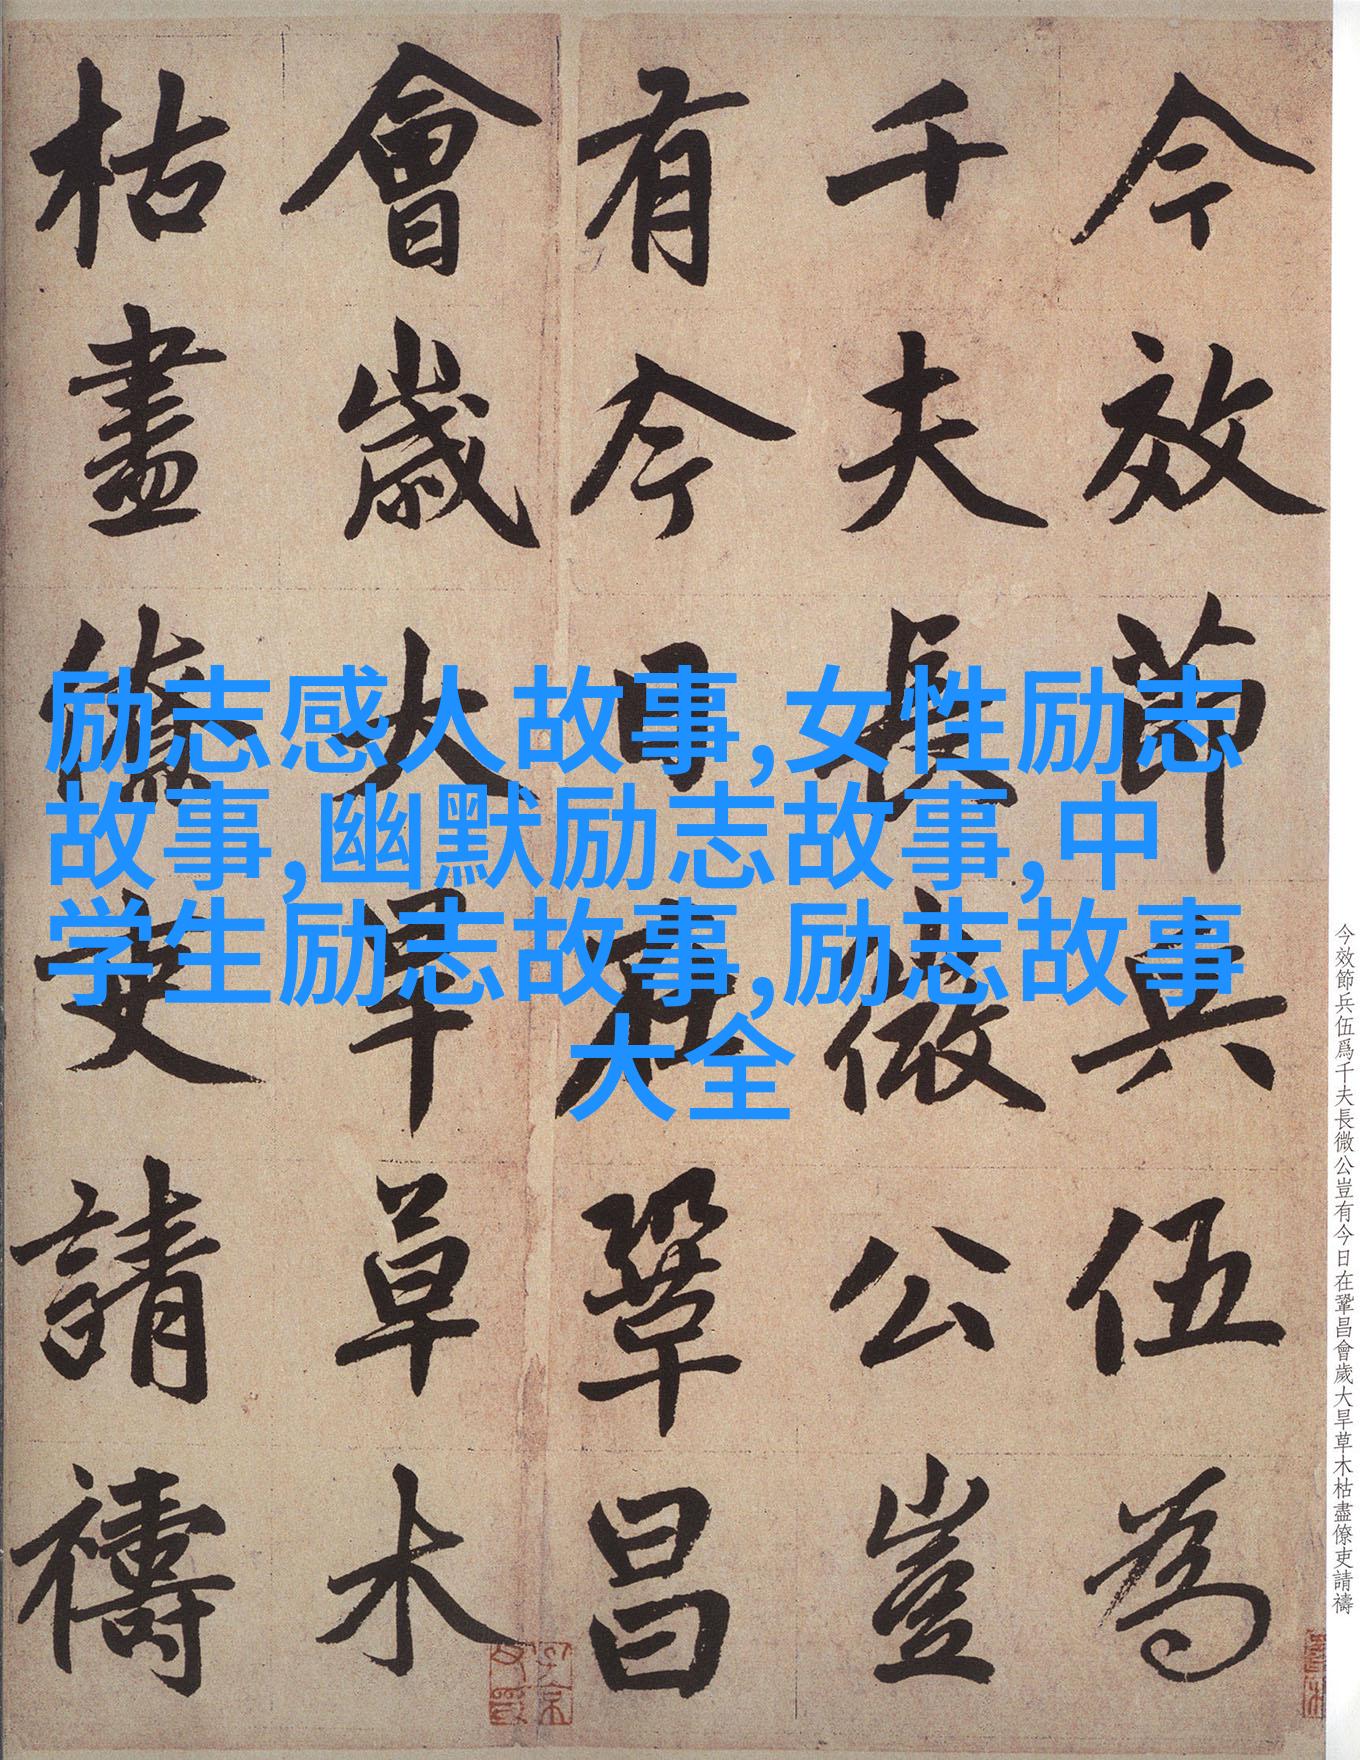 励志感人故事,女性励志
故事,幽默励志故事,中
学生励志故事,励志故事
大全
今效節兵伍為
千夫長微公豈
有今日在鞏昌
會歲大旱草木
枯盡僚吏請禱
今效節兵伍爲千夫長微公豈有今日在鞏昌會歲大旱草木枯盡僚吏請禱